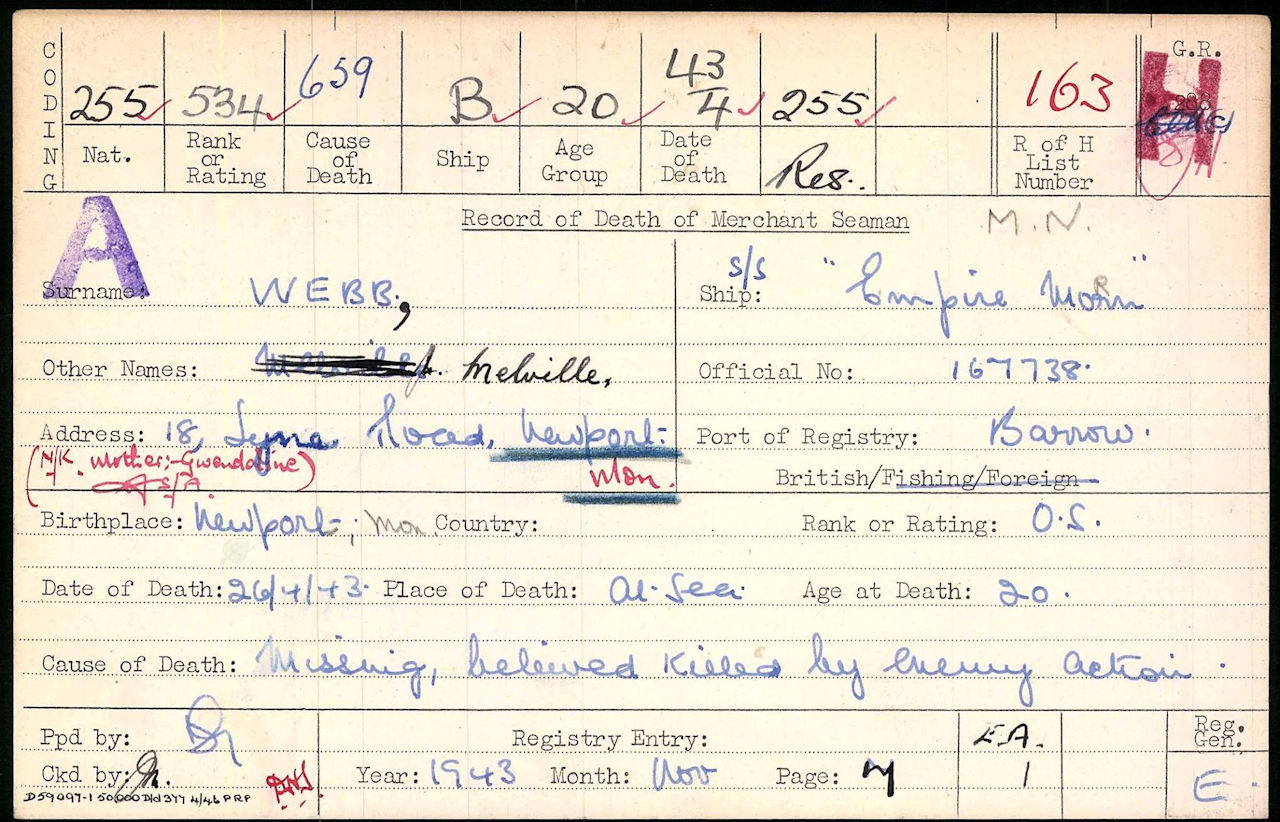 CODING
255 534 659 B 20 43/4 255 163 G.R.
Nat. Rank or Rating Cause of Death Ship Age Group Date of Death Res. R of H List Number
H
A
Record of Death of Merchant Seaman M.N.
Surname: WEBB,
s/s
Ship: "Empire Morn"
Other Names: Melville,
Official No: 167738.
Address: 18, Lyne Road, Newport-
Mon.
(N/K. Mother:-Gwendoline)
S/A.
Port of Registry: Barrow.
British/Fishing/Foreign
Birthplace: Newport; Mon. Country:
Rank or Rating: O.S.
Date of Death: 26/4/43. Place of Death: At Sea. Age at Death: 20.
Cause of Death: Missing, believed killed by enemy action.
Ppd by: Registry Entry: E.A. Reg. Gen.
Ckd by: Year: 1943 Month: Nov Page: 7 1 E.
D59097-1 50,000 D/d 377 4/46 P R P